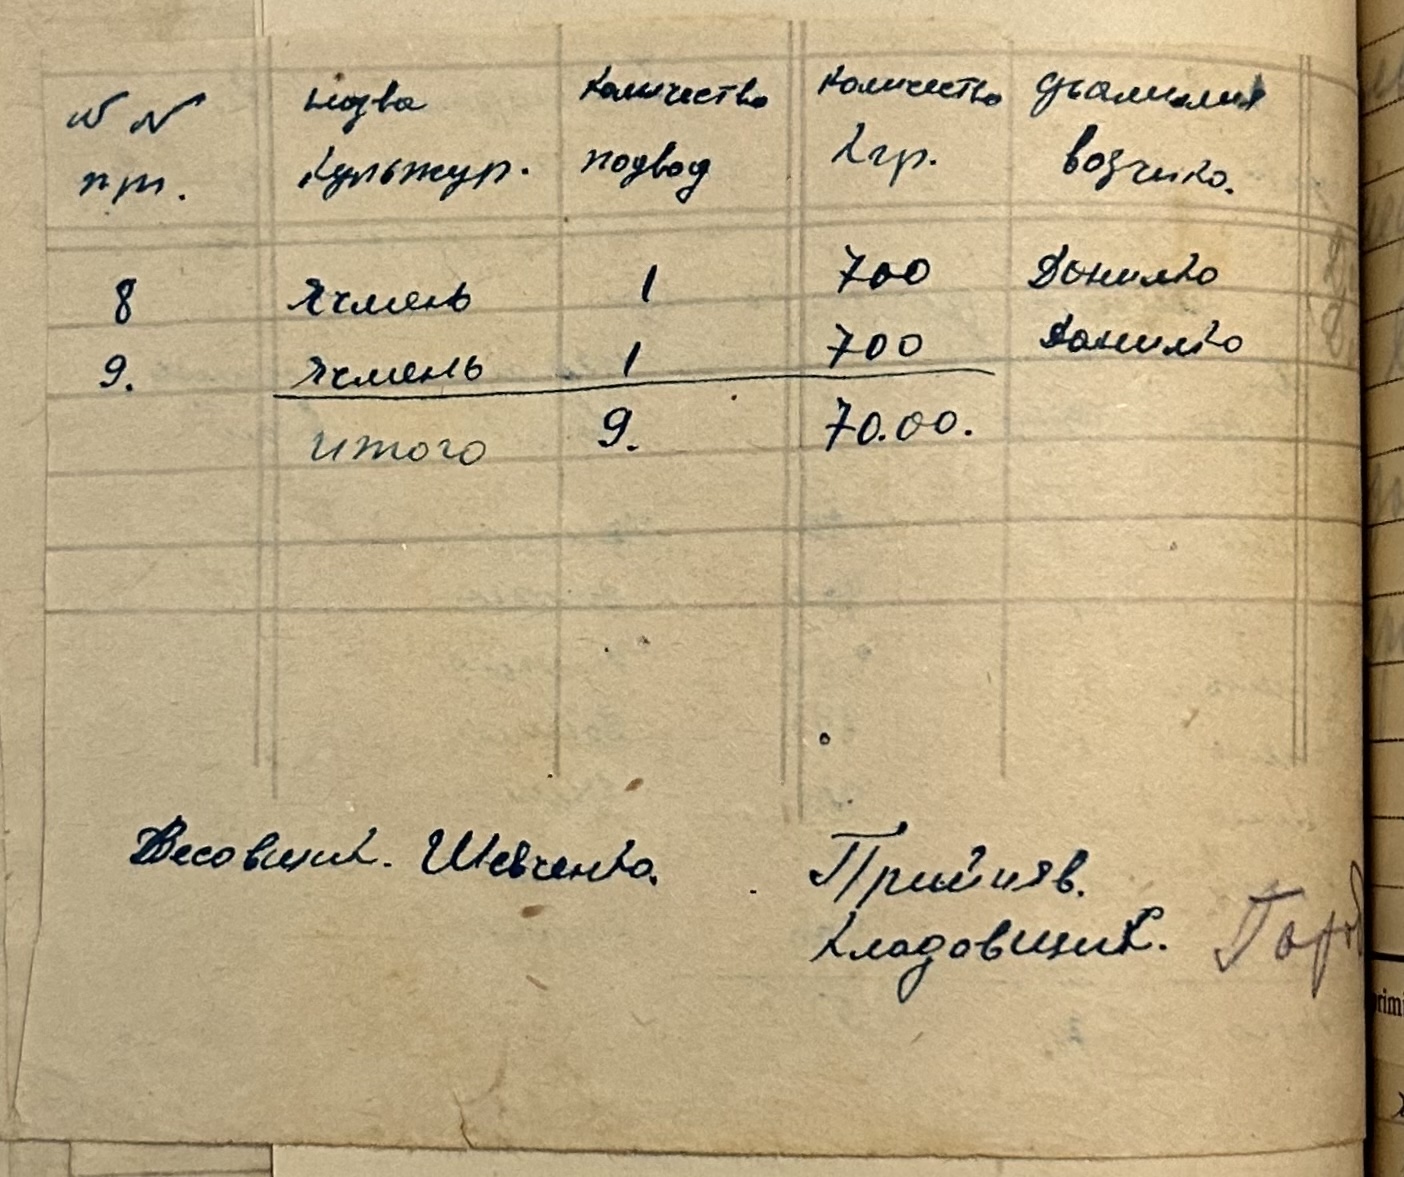 № № назва количество количество фамилия
пп. культур. подвод кгр. возчика.
8 Ячмень 1 700 Данилко
9. Ячмень 1 700 Данилко
итого 9. 70.00.
Весовщик. Шевченко. Прийняв.
кладовщик.